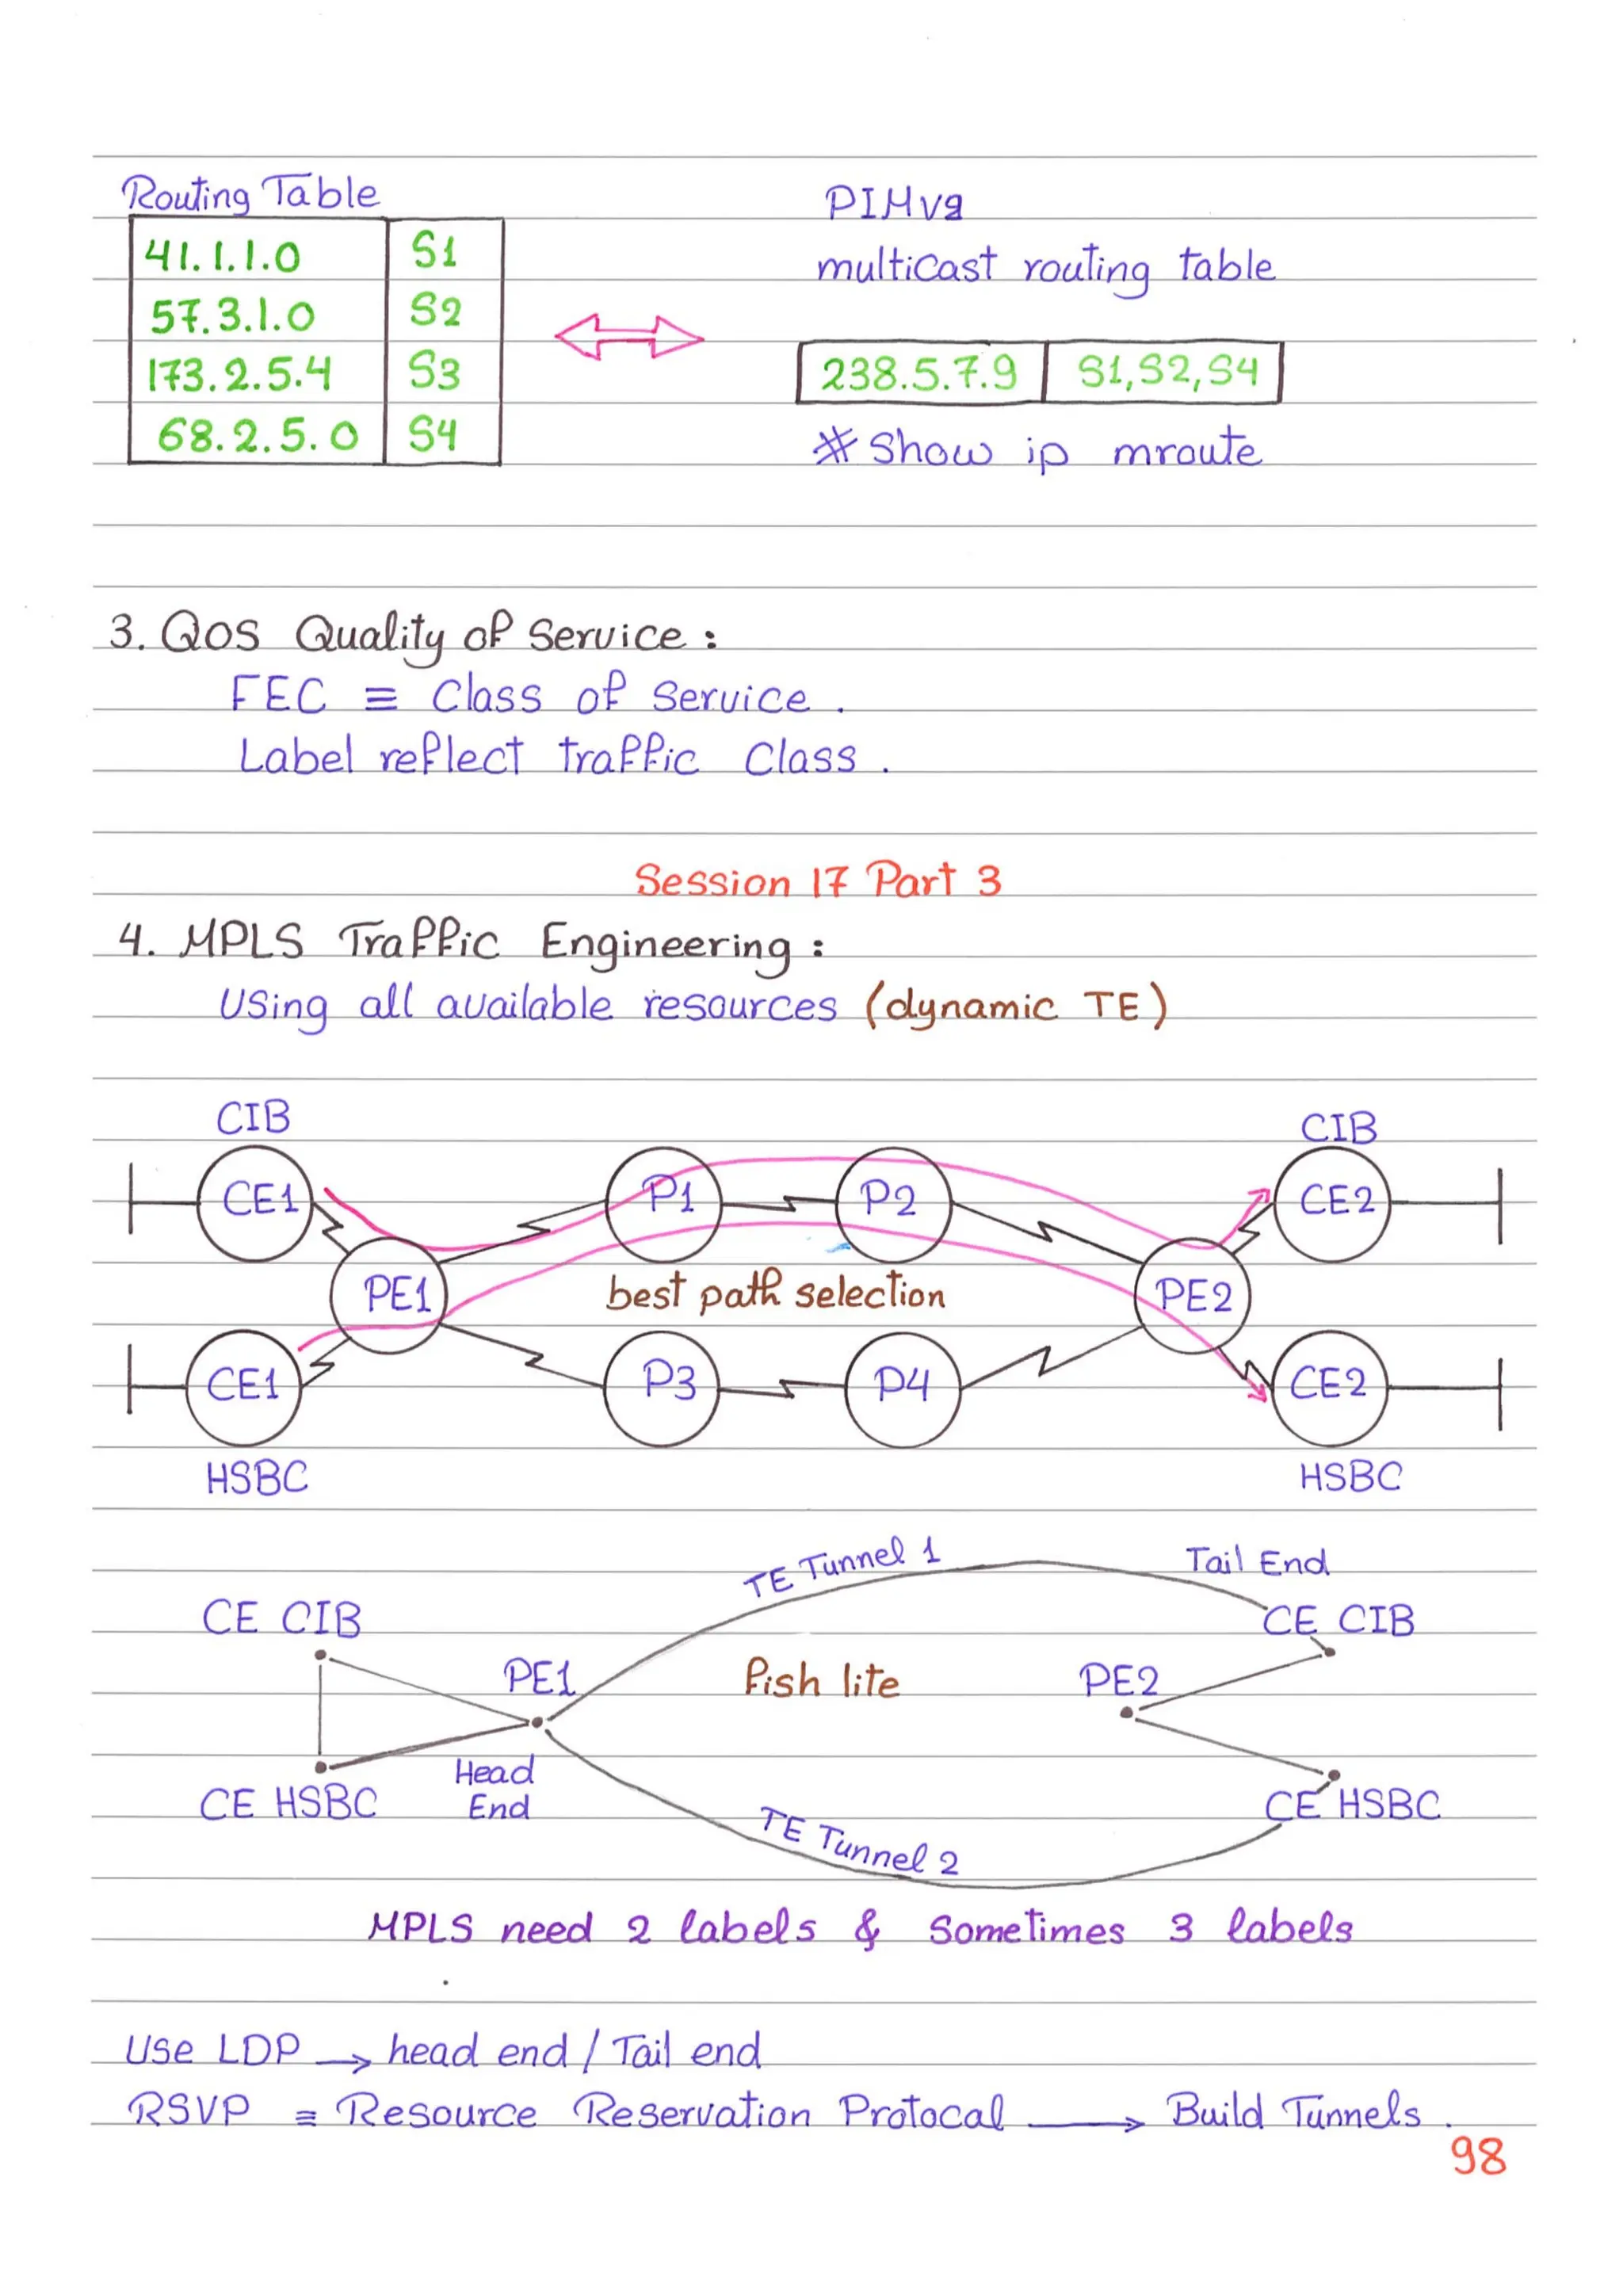 Routing Table
41.1.1.0 S1
57.3.1.0 S2
173.2.5.4 S3
68.2.5.0 S4
PIMv2
multicast routing table
238.5.7.9 S1,S2,S4
# Show ip mroute
3. QoS Quality of Service :
FEC ≡ Class of Service .
Label reflect traffic Class .
Session 17 Part 3
4. MPLS Traffic Engineering :
Using all available resources (dynamic TE)
CIB CIB
CE1 P1 P2 CE2
PE1 best path selection PE2
CE1 P3 P4 CE2
HSBC HSBC
TE Tunnel 1 Tail End
CE CIB CE CIB
PE1 fish lite PE2
Head
End
CE HSBC CE HSBC
TE Tunnel 2
MPLS need 2 labels & Sometimes 3 labels
Use LDP → head end / Tail end
RSVP ≡ Resource Reservation Protocal → Build Tunnels .
98